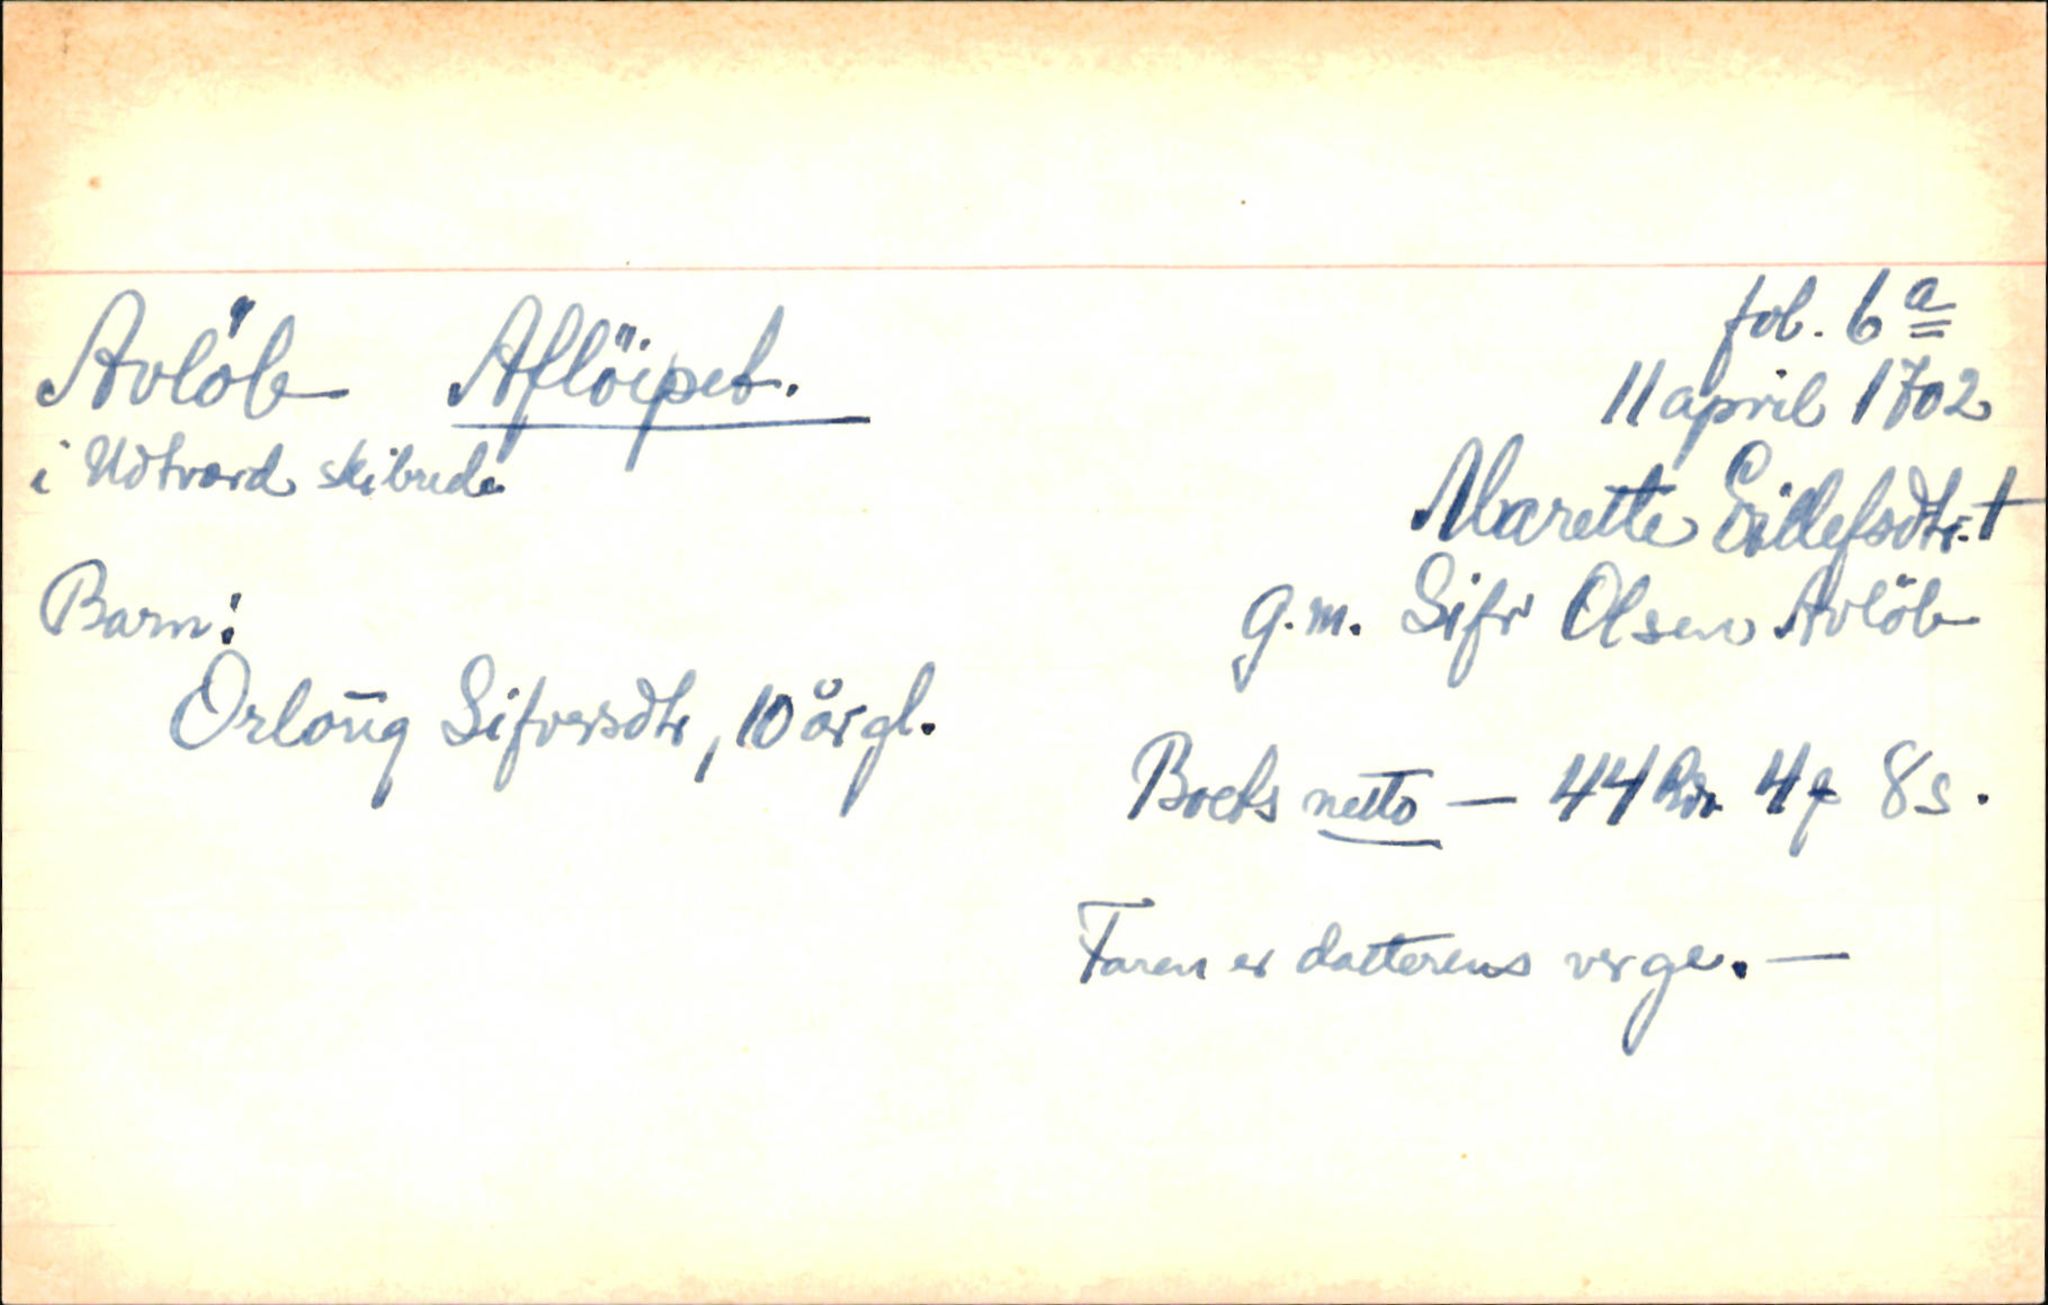 fol. 6 a
Avlöb Aflöipet.
11 april 1702
i Udtvord skibrede
Marette Eillefsdtr. †
Barn:
g.m. Sifr Olsen Avlöb
Orloug Sifversdtr, 10 år gl.
Boets netto — 44 Rdr 4 f 8 s.
Faren er datterens verge. —